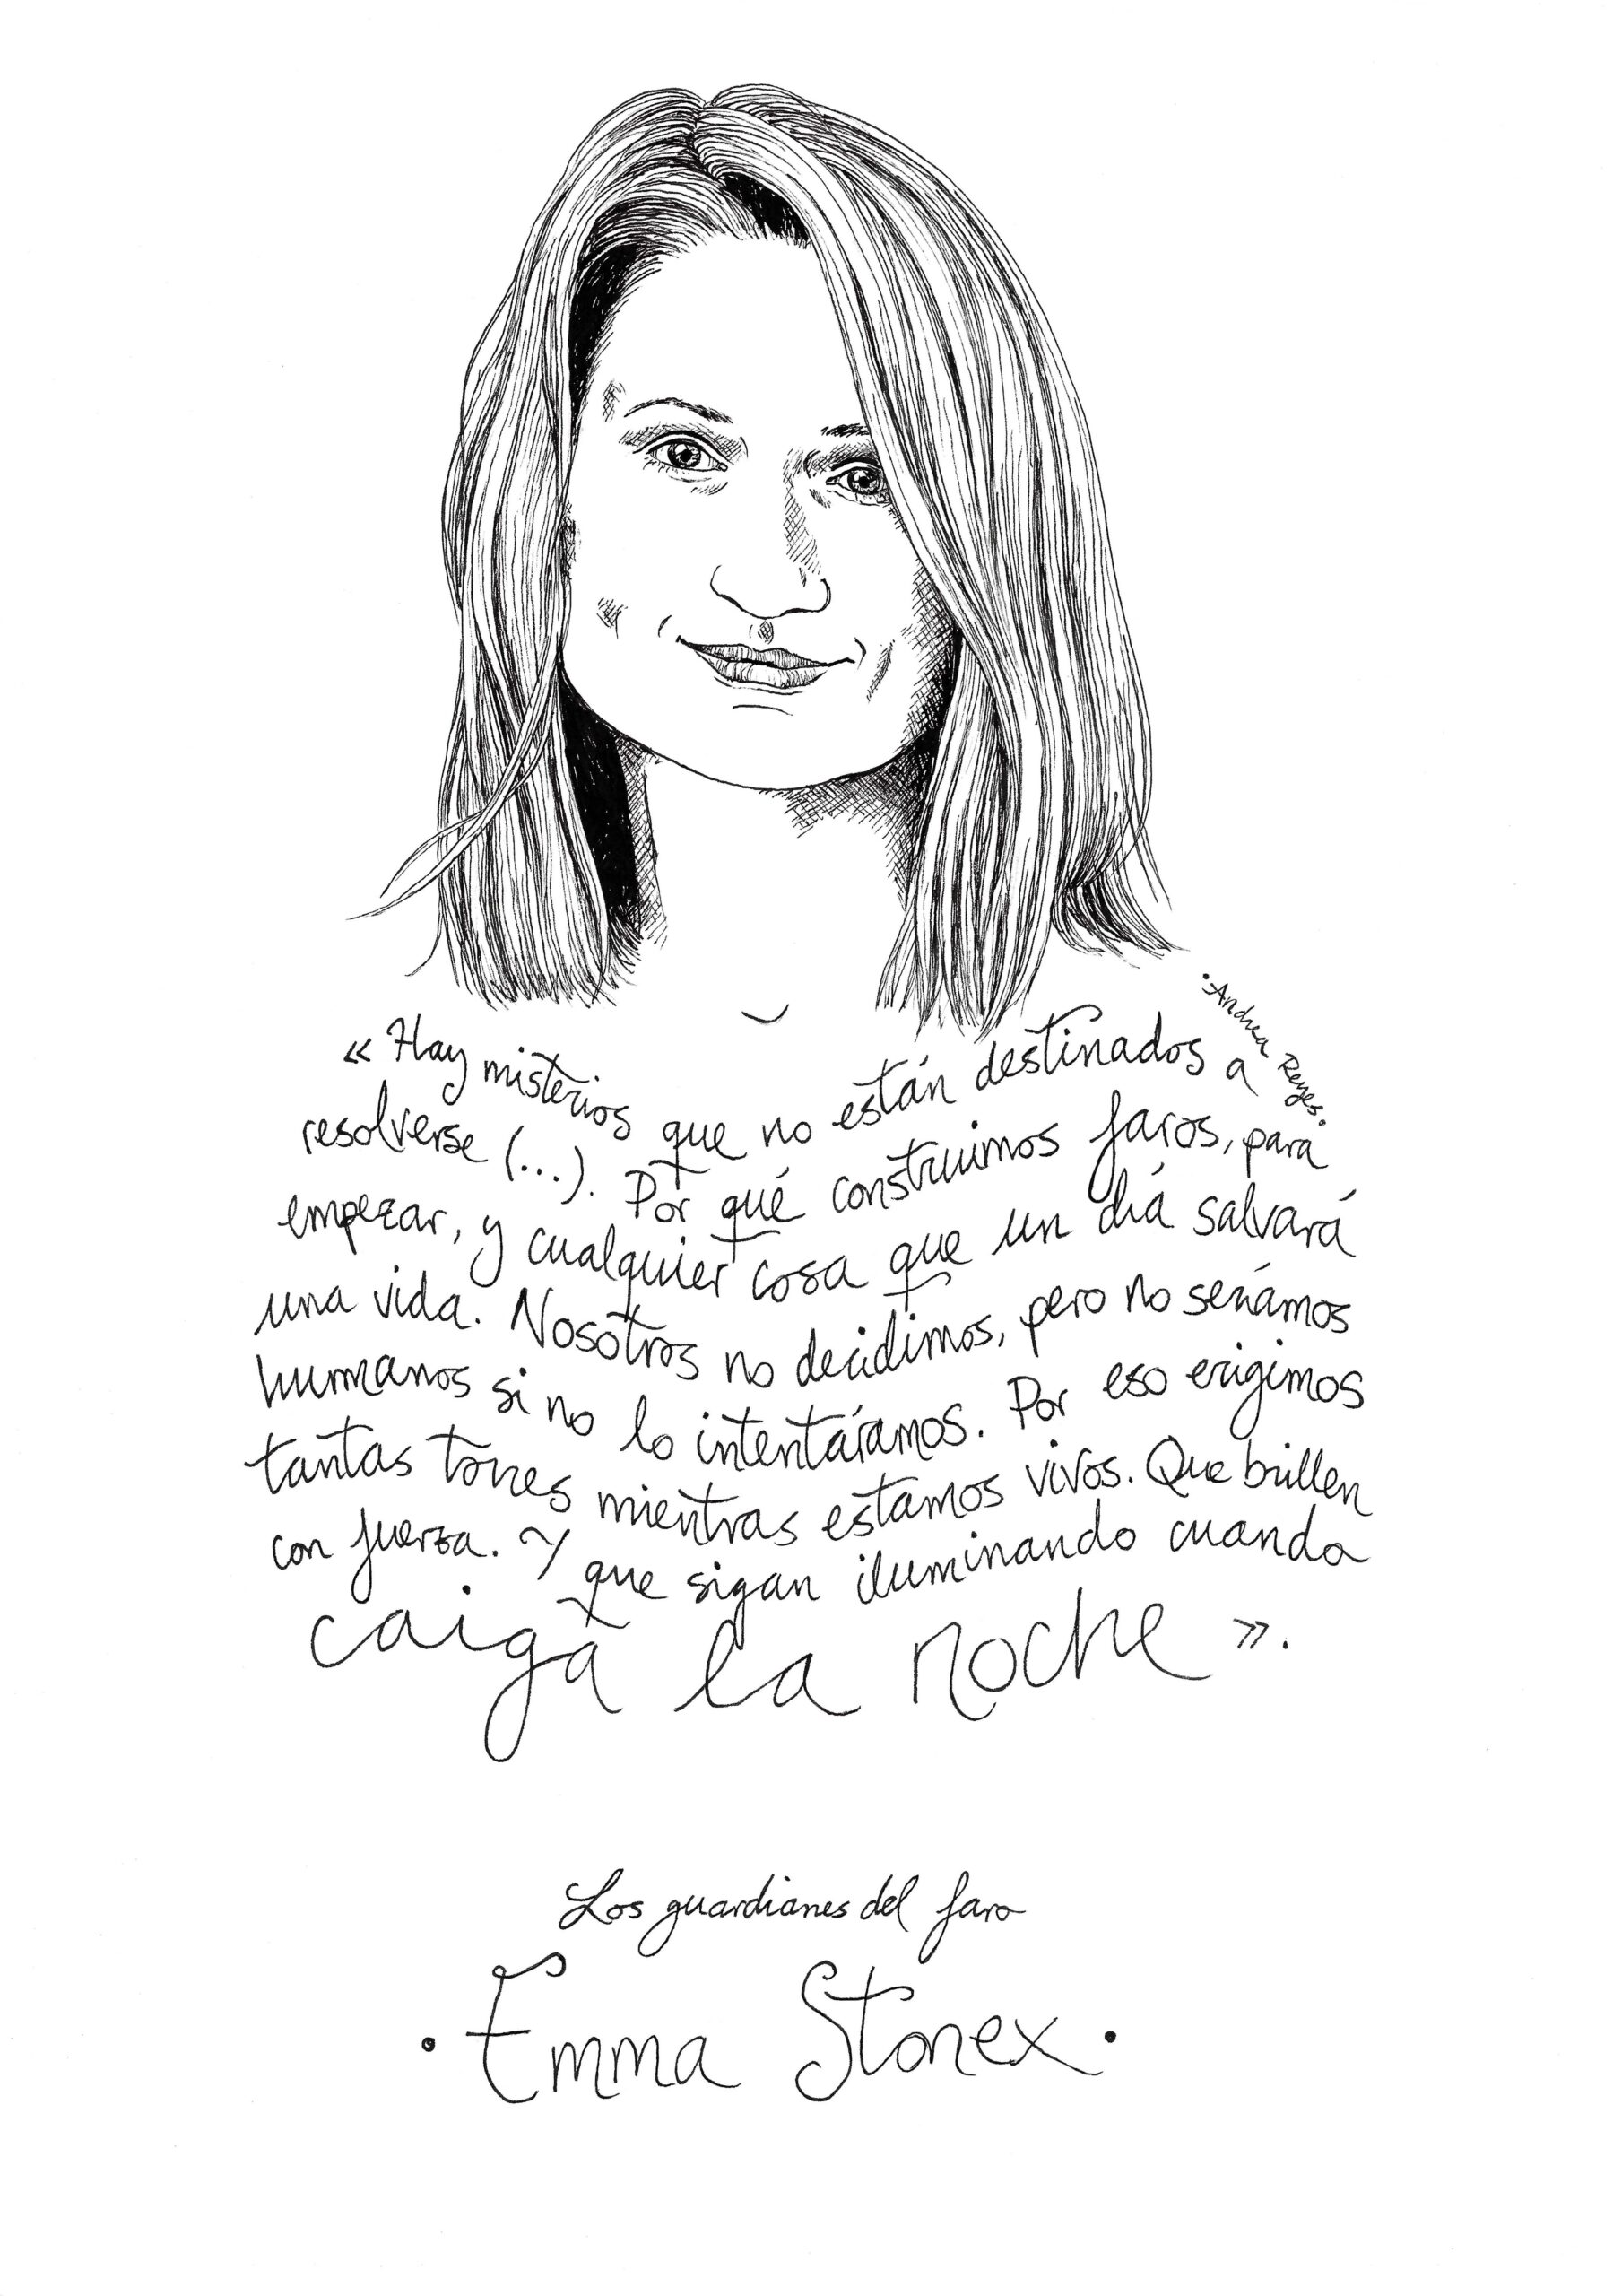 « Hay misterios que no están destinados a
resolverse (...). Por qué construimos faros, para
empezar, y cualquier cosa que un día salvará
una vida. Nosotros no decidimos, pero no seríamos
humanos si no lo intentáramos. Por eso erigimos
tantas torres mientras estamos vivos. Que brillen
con fuerza. Y que sigan iluminando cuando
caiga la noche ».
·Andrea Reyes·
Los guardianes del faro
· Emma Stonex ·